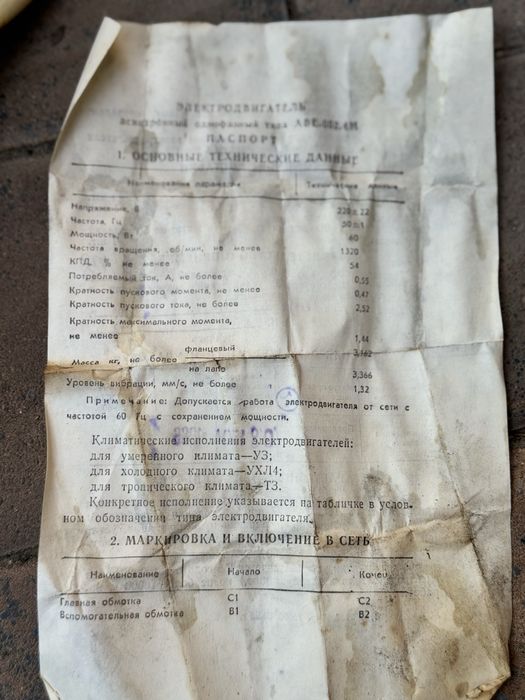 ЭЛЕКТРОДВИГАТЕЛЬ
асинхронный однофазный типа АВЕ-062.4М
ПАСПОРТ
1. ОСНОВНЫЕ ТЕХНИЧЕСКИЕ ДАННЫЕ
Наименование параметра Технические данные
Напряжение, В 220±22
Частота, Гц 50±1
Мощность, Вт 60
Частота вращения, об/мин, не менее 1320
КПД, % не менее 54
Потребляемый ток, А, не более 0,55
Кратность пускового момента, не менее 0,47
Кратность пускового тока, не более 2,52
Кратность максимального момента,
не менее 1,44
фланцевый 3,162
Масса кг, не более
на лапе 3,366
Уровень вибрации, мм/с, не более 1,32
Примечание: Допускается работа электродвигателя от сети с
частотой 60 Гц с сохранением мощности.
Климатические исполнения электродвигателей:
для умеренного климата—У3;
для холодного климата—УХЛ4;
для тропического климата—Т3.
Конкретное исполнение указывается на табличке в услов-
ном обозначении типа электродвигателя.
2. МАРКИРОВКА И ВКЛЮЧЕНИЕ В СЕТЬ
Наименование Начало Конец
Главная обмотка С1 С2
Вспомогательная обмотка В1 В2